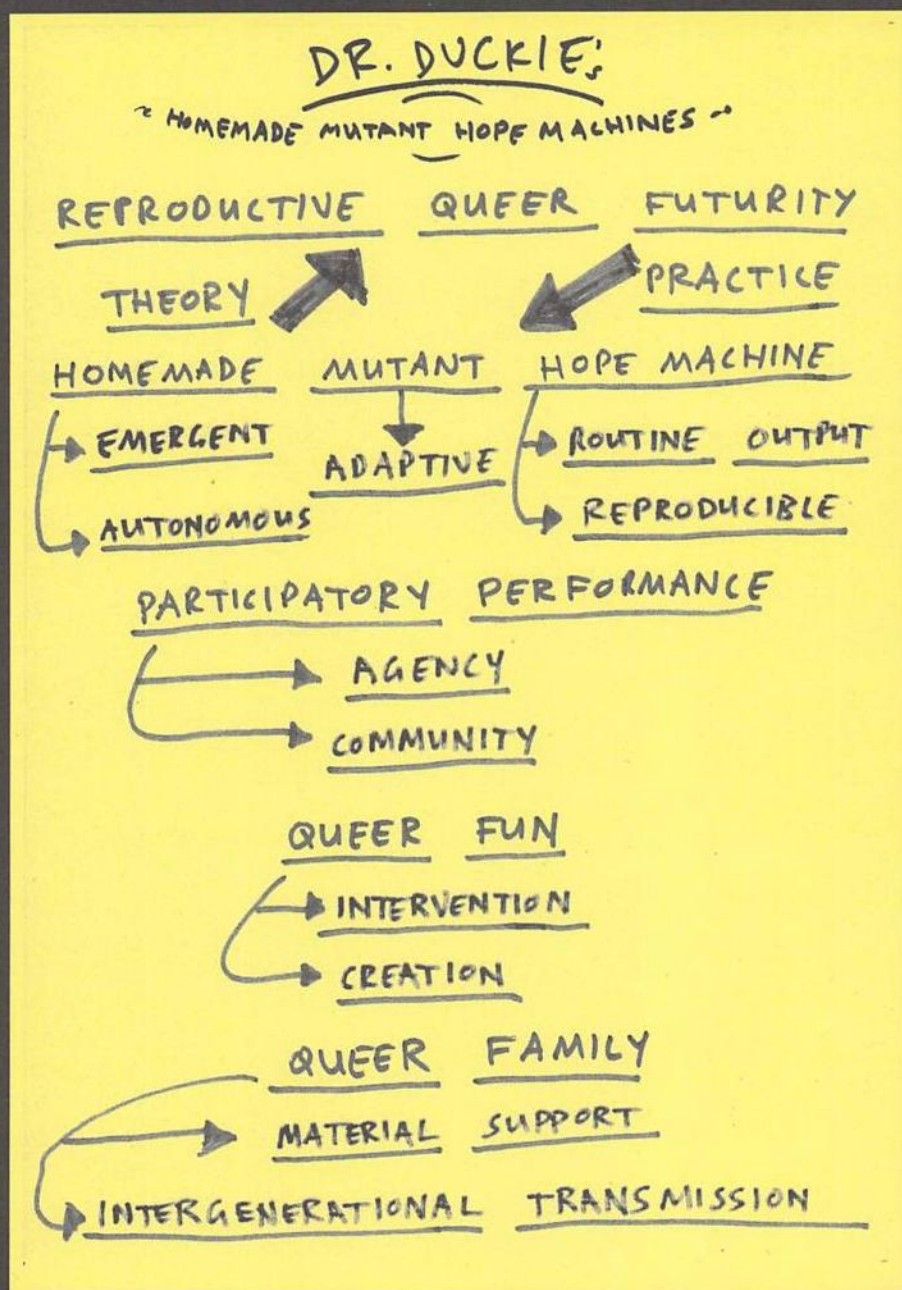 DR. DUCKIE's
~ HOMEMADE MUTANT HOPE MACHINES ~
REPRODUCTIVE QUEER FUTURITY
THEORY PRACTICE
HOMEMADE MUTANT HOPE MACHINE
EMERGENT ADAPTIVE ROUTINE OUTPUT
AUTONOMOUS REPRODUCIBLE
PARTICIPATORY PERFORMANCE
AGENCY
COMMUNITY
QUEER FUN
INTERVENTION
CREATION
QUEER FAMILY
MATERIAL SUPPORT
INTERGENERATIONAL TRANSMISSION